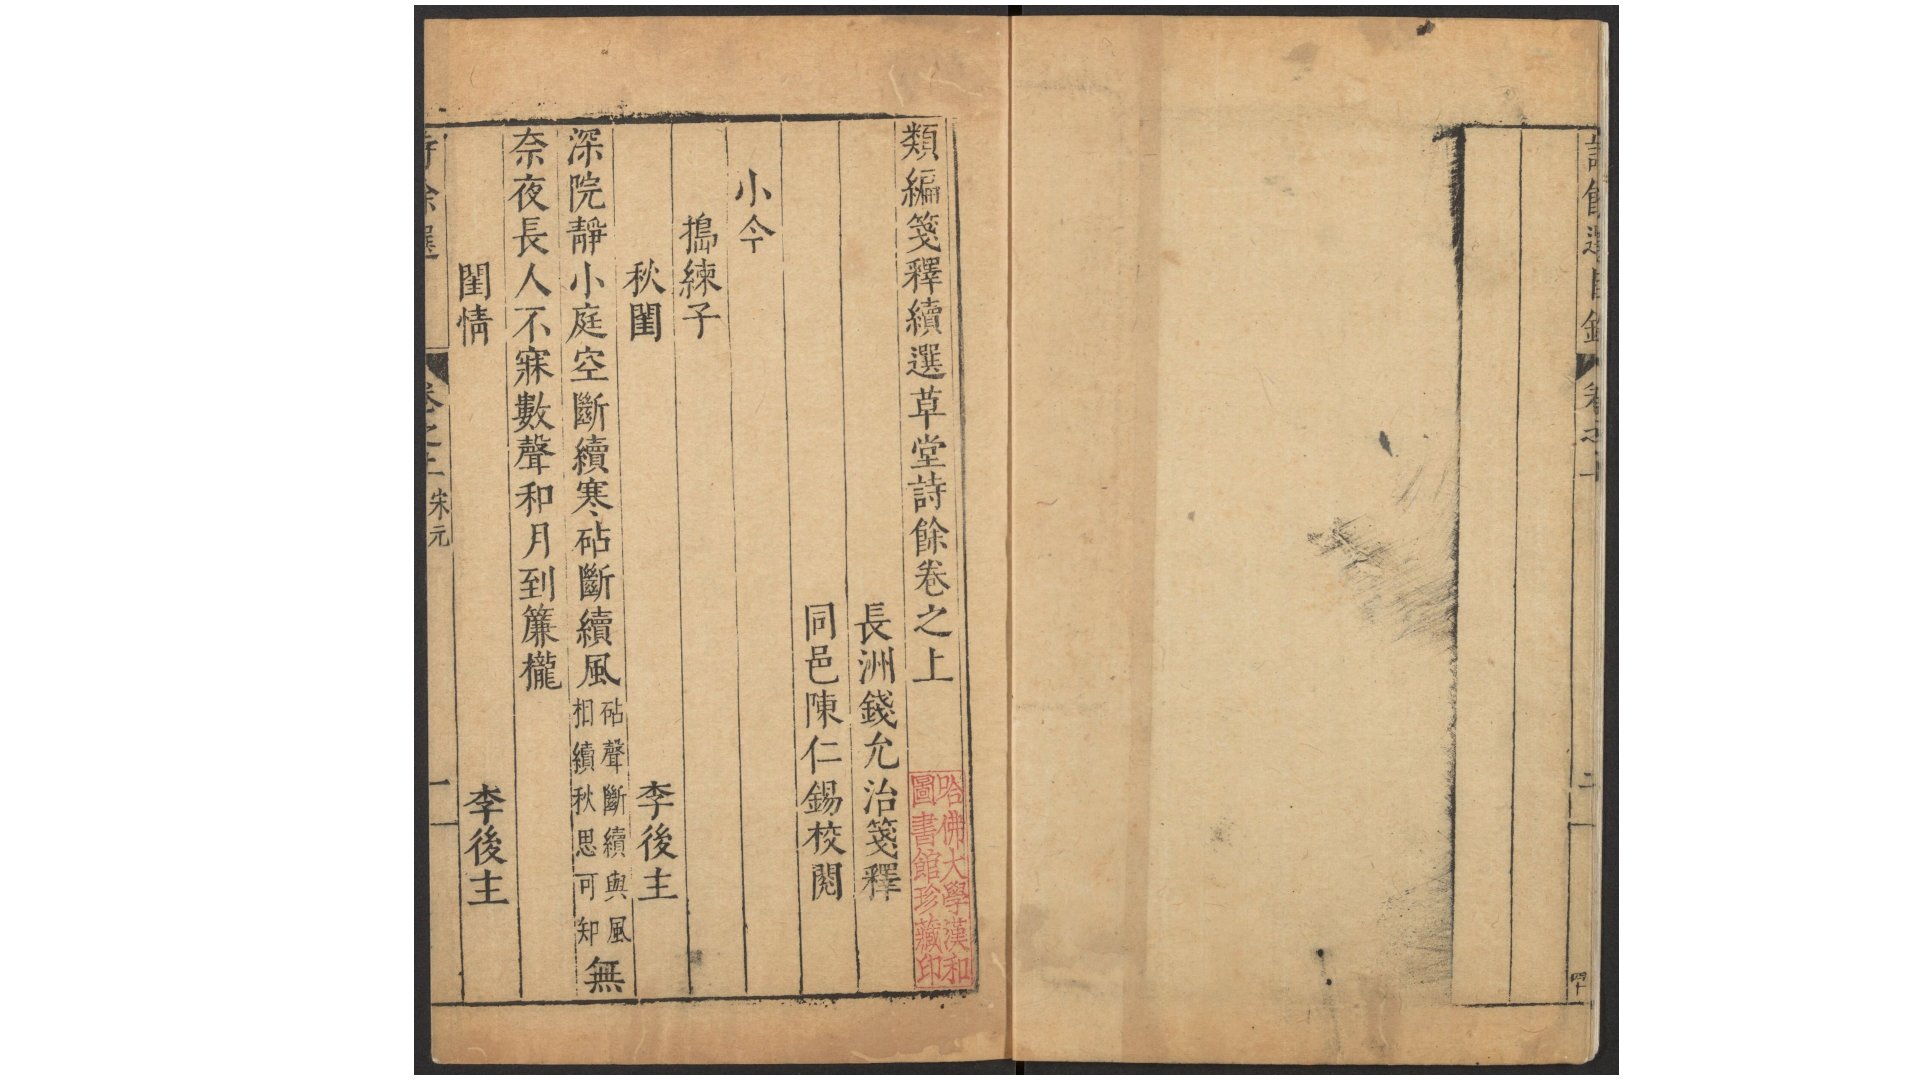 類編箋釋續選草堂詩餘卷之上
長洲錢允治箋釋
同邑陳仁錫校閱
小令
搗練子
秋閨 李後主
深院靜小庭空斷續寒砧斷續風砧聲斷續與風相續秋思可知無
奈夜長人不寐數聲和月到簾櫳
閨情 李後主
詩餘選 卷之上 宋元 一
哈佛大學漢和
圖書館珍藏印